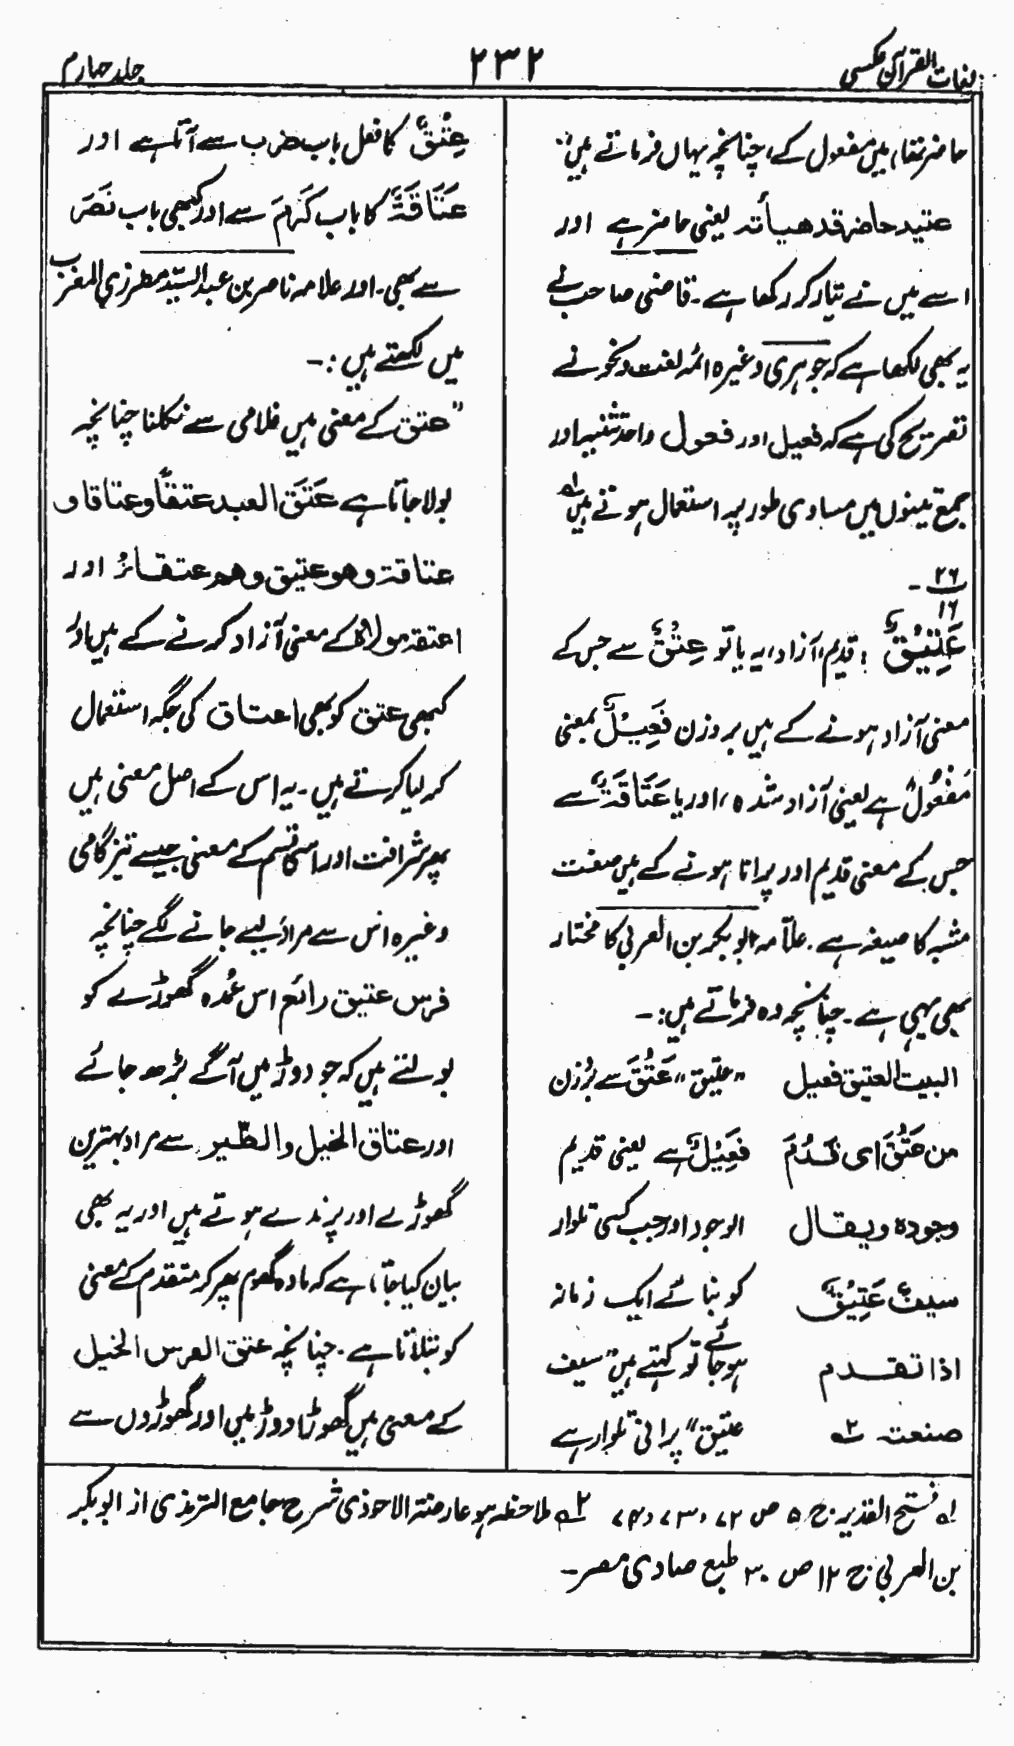 لغات القرآن عکسی
۲۳۲
جلد چہارم
حاضر تھا، میں مفعول کے، چنانچہ یہاں فرماتے ہیں"
عتید حاضر قد هیأته یعنی حاضر ہے اور
اسے میں نے تیار کر رکھا ہے۔ قاضی صاحب نے
یہ بھی لکھا ہے کہ جوہری وغیرہ ائمہ لغت و نحو نے
تصریح کی ہے کہ فعیل اور فعول واحد تثنیہ اور
جمع تینوں میں مساوی طور پر استعمال ہوتے ہیں لہ
۲۶
۱۶ ۔
عَتِیْقٌ : قدیم، آزاد، یہ یا تو عِتْقٌ سے جس کے
معنی آزاد ہونے کے ہیں بروزن فَعِیْلٌ بمعنی
مَفْعُوْلٌ ہے یعنی آزاد شدہ، اور یا عَتَاقَۃٌ سے
جس کے معنی قدیم اور پرانا ہونے کے ہیں صفت
مشبہ کا صیغہ ہے۔ علاّمہ ابوبکر بن العربی کا مختار
بھی یہی ہے۔ چنانچہ وہ فرماتے ہیں:۔
البیت العتیق فعیل "عتیق" عَتُقَ سے بروزن
من عَتُقَ ای قَدُمَ فَعِیْلٌ ہے یعنی قدیم
وجودہ ویقال الوجود اور جب کسی تلوار
سیفٌ عَتِیْقٌ کو بنائے ایک زمانہ
اذا تقدم ہو جائے تو کہتے ہیں "سیف
صنعت ۲ہ عتیق" پرانی تلوار ہے
عِتْقٌ کا فعل باب ضرب سے آتا ہے اور
عَتَاقَۃٌ کا باب کَرُمَ سے اور کبھی باب نَصَرَ
سے بھی۔ اور علامہ ناصر بن عبد السیّد مطرزی المغرب
میں لکھتے ہیں :۔
"عتق کے معنی ہیں غلامی سے نکلنا چنانچہ
بولا جاتا ہے عَتَقَ العبد عتقاً وعتاقا و
عتاقة وهو عتیق وهم عتقاءُ اور
اعتقہ مولاہ کے معنی آزاد کرنے کے ہیں اور
کبھی عتق کو بھی اعتاق کی جگہ استعمال
کر لیا کرتے ہیں۔ یہ اس کے اصل معنی ہیں
پھر شرافت اور اس قسم کے معنی جیسے تیز گامی
وغیرہ اس سے مراد لیے جانے لگے چنانچہ
فرس عتیق رائع اس عُمدہ گھوڑے کو
بولتے ہیں کہ جو دوڑ میں آگے بڑھ جائے
اور عتاق الخیل والطیر سے مراد بہترین
گھوڑے اور پرندے ہوتے ہیں اور یہ بھی
بیان کیا جاتا ہے کہ مادہ گھوم پھر کر متقدم کے معنی
کو بتلاتا ہے۔ چنانچہ عتق الفرس الخیل
کے معنی ہیں گھوڑا دوڑ میں اور گھوڑوں سے
لہ فتح القدیر ج ۵ ص ۷۲، ۷۳، ۷۴ ۲ہ ملاحظہ ہو عارضۃ الاحوذی شرح جامع الترمذی از ابوبکر
بن العربی ج ۱۲ ص ۳۰ طبع صاوی مصر۔